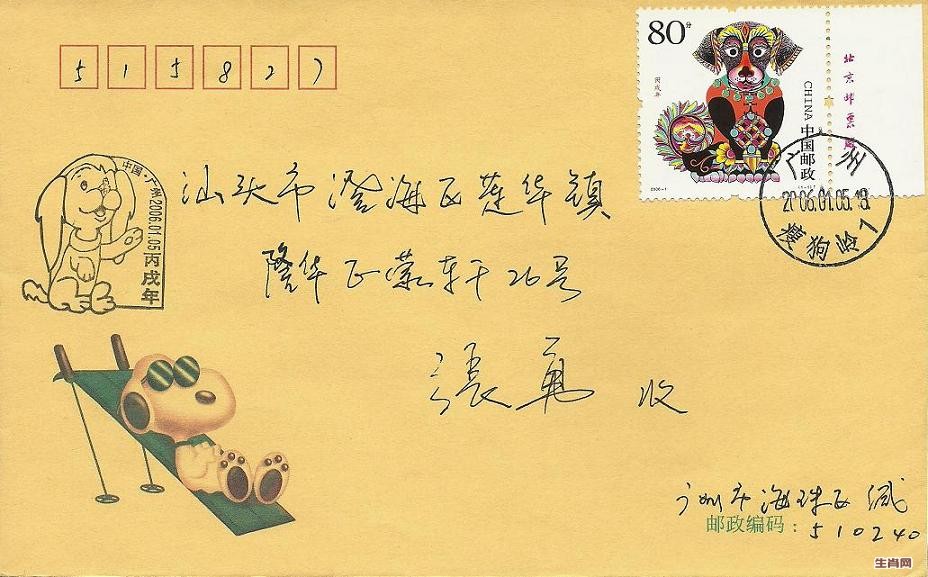 515827
80分
丙戌年
CHINA 中国邮政
2006-1
北京邮票
中国·广州·2006.01.05
丙戌年
广州
2006.01.05.19
瘦狗岭1
汕头市澄海区莲华镇
隆华
26号
張勇 收
广州市海珠区 缄
邮政编码：510240
生肖网